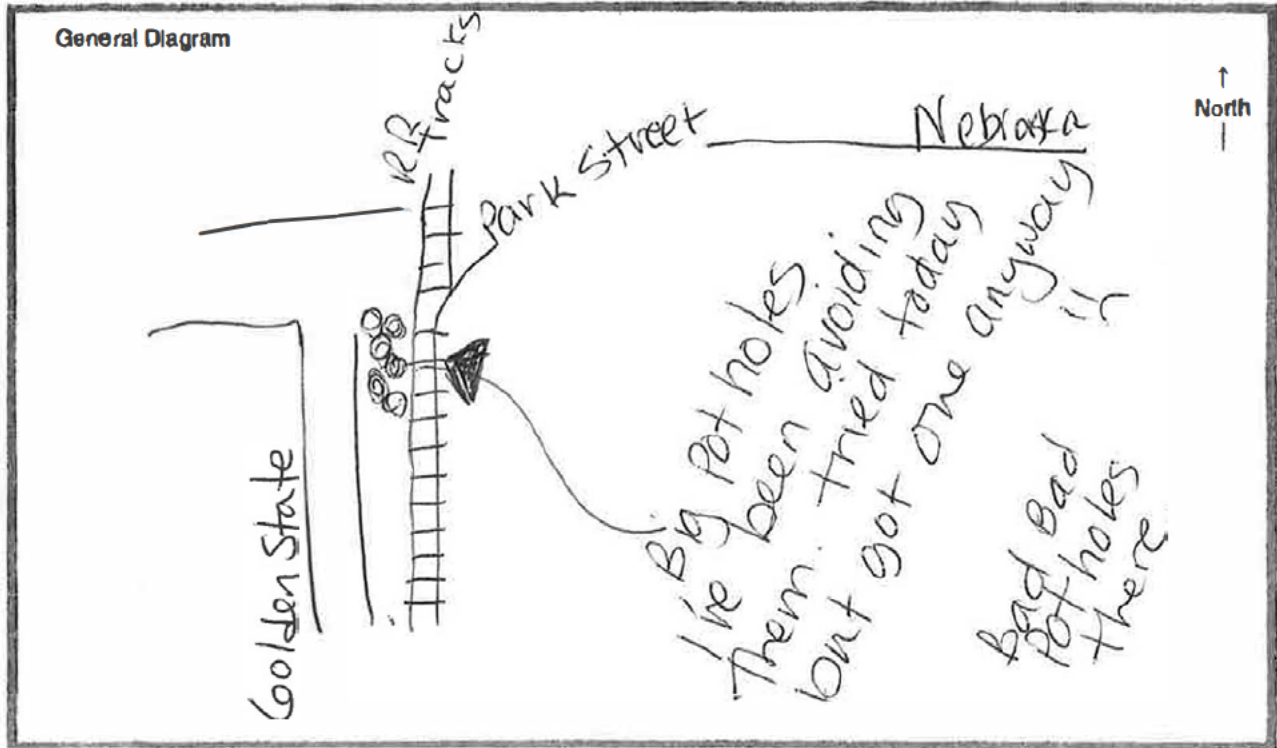 General Diagram
↑
North
|
RR
tracks
Park Street
Nebraska
Golden State
Big Pot holes
I've been avoiding
Them. tried today
but got one anyway
Bad Bad
Pot holes
there